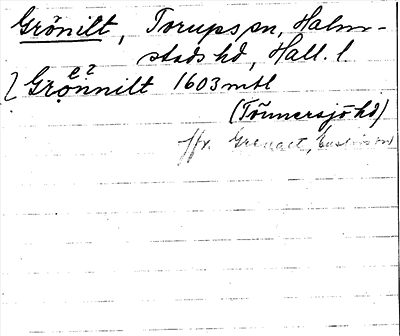 Grönilt, Torups sn, Halm-
stads hd, Hall. l.
e?
[ Gronnilt 1603 mtl
(Tönnersjö hd)
Jfr